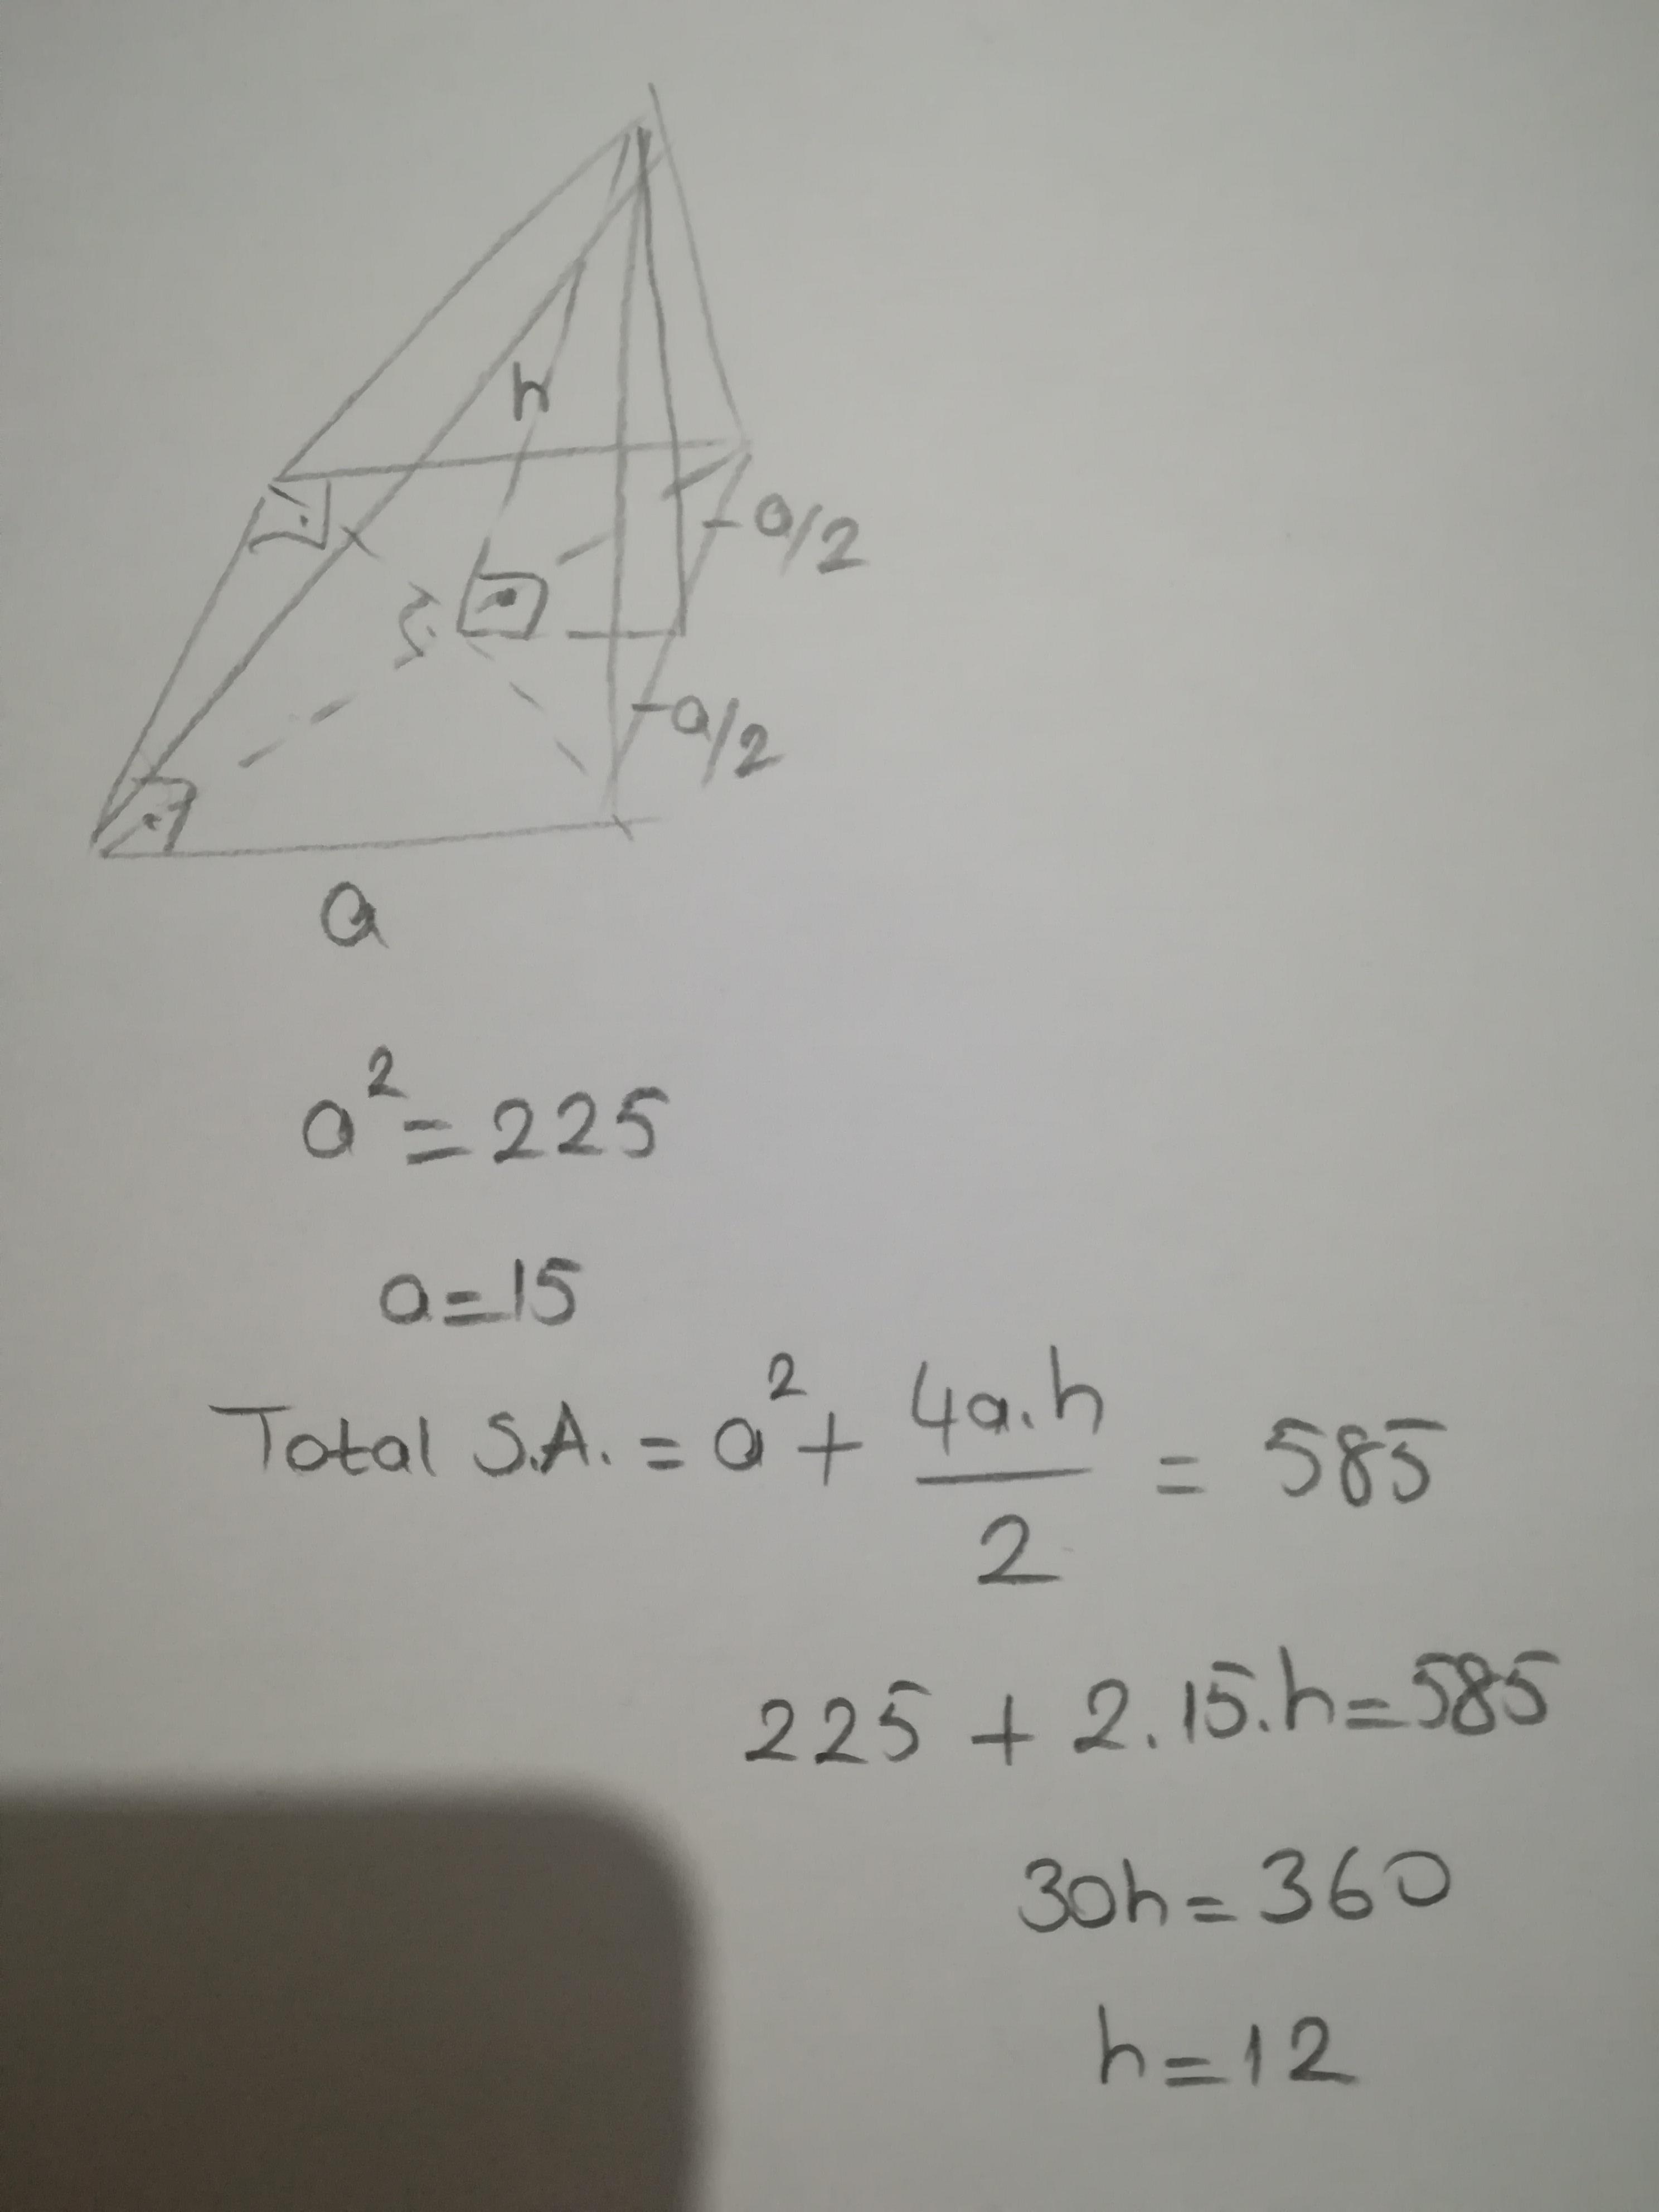 h
a/2
a/2
a
a² = 225
a=15
Total S.A. = a² + 4a.h / 2 = 585
225 + 2.15.h=585
30h= 360
h=12